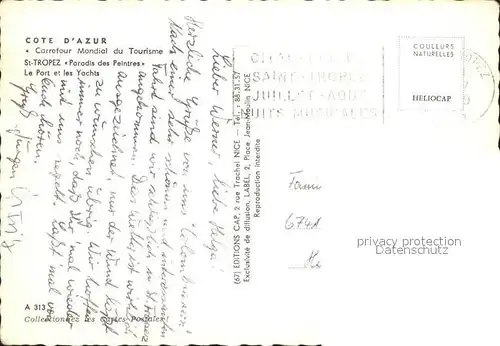 COTE D'AZUR
« Carrefour Mondial du Tourisme »
St-TROPEZ «Paradis des Peintres»
Le Port et les Yachts
COULEURS
NATURELLES
HELIOCAP
SAINT-TROPEZ
JUILLET-AOUT
NUITS MUSICALES
Lieber Werner, liebe Helga!
Herzliche Grüße von uns
Nach einer sehr schönen und interessanten
Fahrt sind wir in St. Tropez
angekommen. Das Wetter ist wirklich
ausgezeichnet, nur der Wind läßt
zu wünschen übrig. Wir hoffen
immer noch, daß Ihr mal wieder
mit uns segelt. Laßt mal von
Euch hören.
Gruß
Jürgen
(67) EDITIONS CAP, 2 rue Trachel NICE — Tél. : 88.31.57
Exclusivité de diffusion, LABEL, 2, Place Jean-Moulin NICE
Reproduction interdite
Fami
6741
A 313
Collectionnez les Cartes Postales
privacy protection
Ansichtskarten-Center